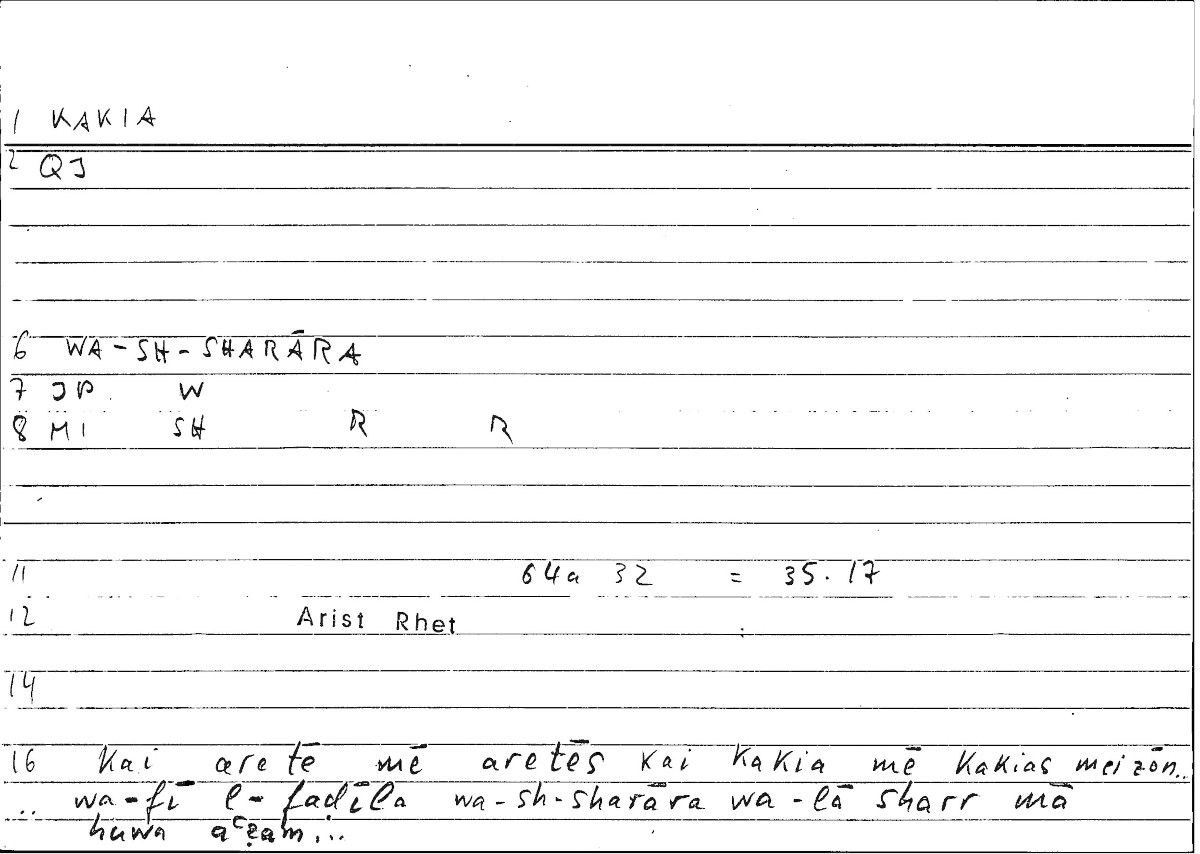 1 KAKIA
2 QJ
6 WA-SH-SHARĀRA
7 JP. W
8 MI SH R R
11 64a 32 = 35.17
12 Arist Rhet :
14
16 Kai aretē mē aretēs kai kakia mē kakias meizōn..
.. wa-fī l-faḍīla wa-sh-sharāra wa-lā sharr mā
huwa aʿẓam...